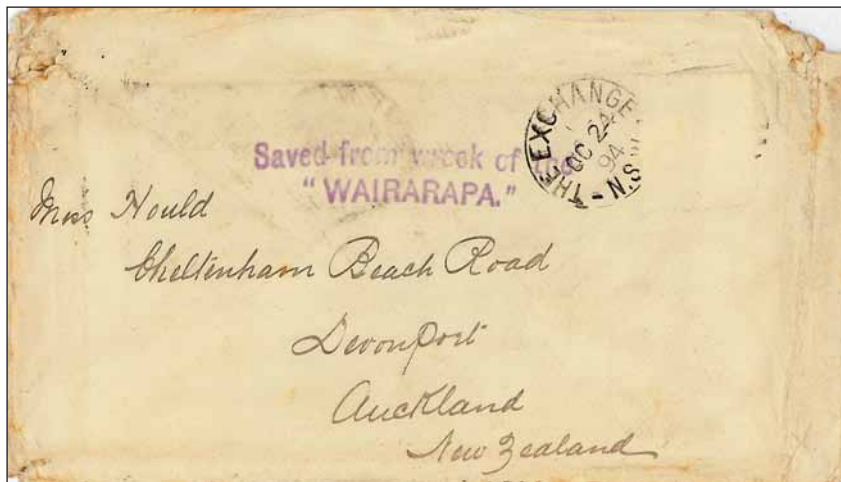 Saved from wreck of the
"WAIRARAPA."
THE EXCHANGE
OC 24
94
N.S.W
Miss Hould
Cheltenham Beach Road
Devonport
Auckland
New Zealand